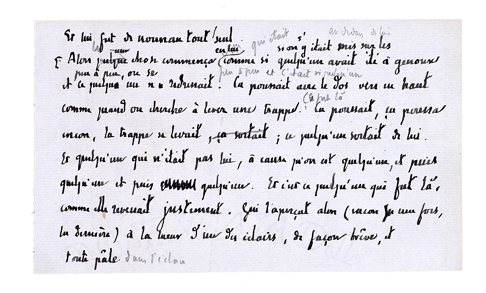 Et lui fut de nouveau tout seul
qui était au-dedans de lui
si on s'était mis sur les
Alors quelque chose commença (comme si quelqu'un avait été à genoux
peu à peu, ou se peu à peu et c'était si quelqu'un
et ce quelqu'un se redressait. Ça poussait avec le dos vers en haut
comme quand on cherche à lever une trappe. Ça poussait, ça pressa
encore, la trappe se levait, ça sortait ; ce quelqu'un sortait de lui.
Et quelqu'un qui n'était pas lui, à cause qu'on est quelqu'un, et puis
quelqu'un et puis quelqu'un. Et c'est ce quelqu'un qui fut là,
comme elle revenait justement. Qui l'aperçut alors (encore une fois,
la dernière) à la lueur d'un des éclairs, de façon brève, et
toute pâle dans l'éclair